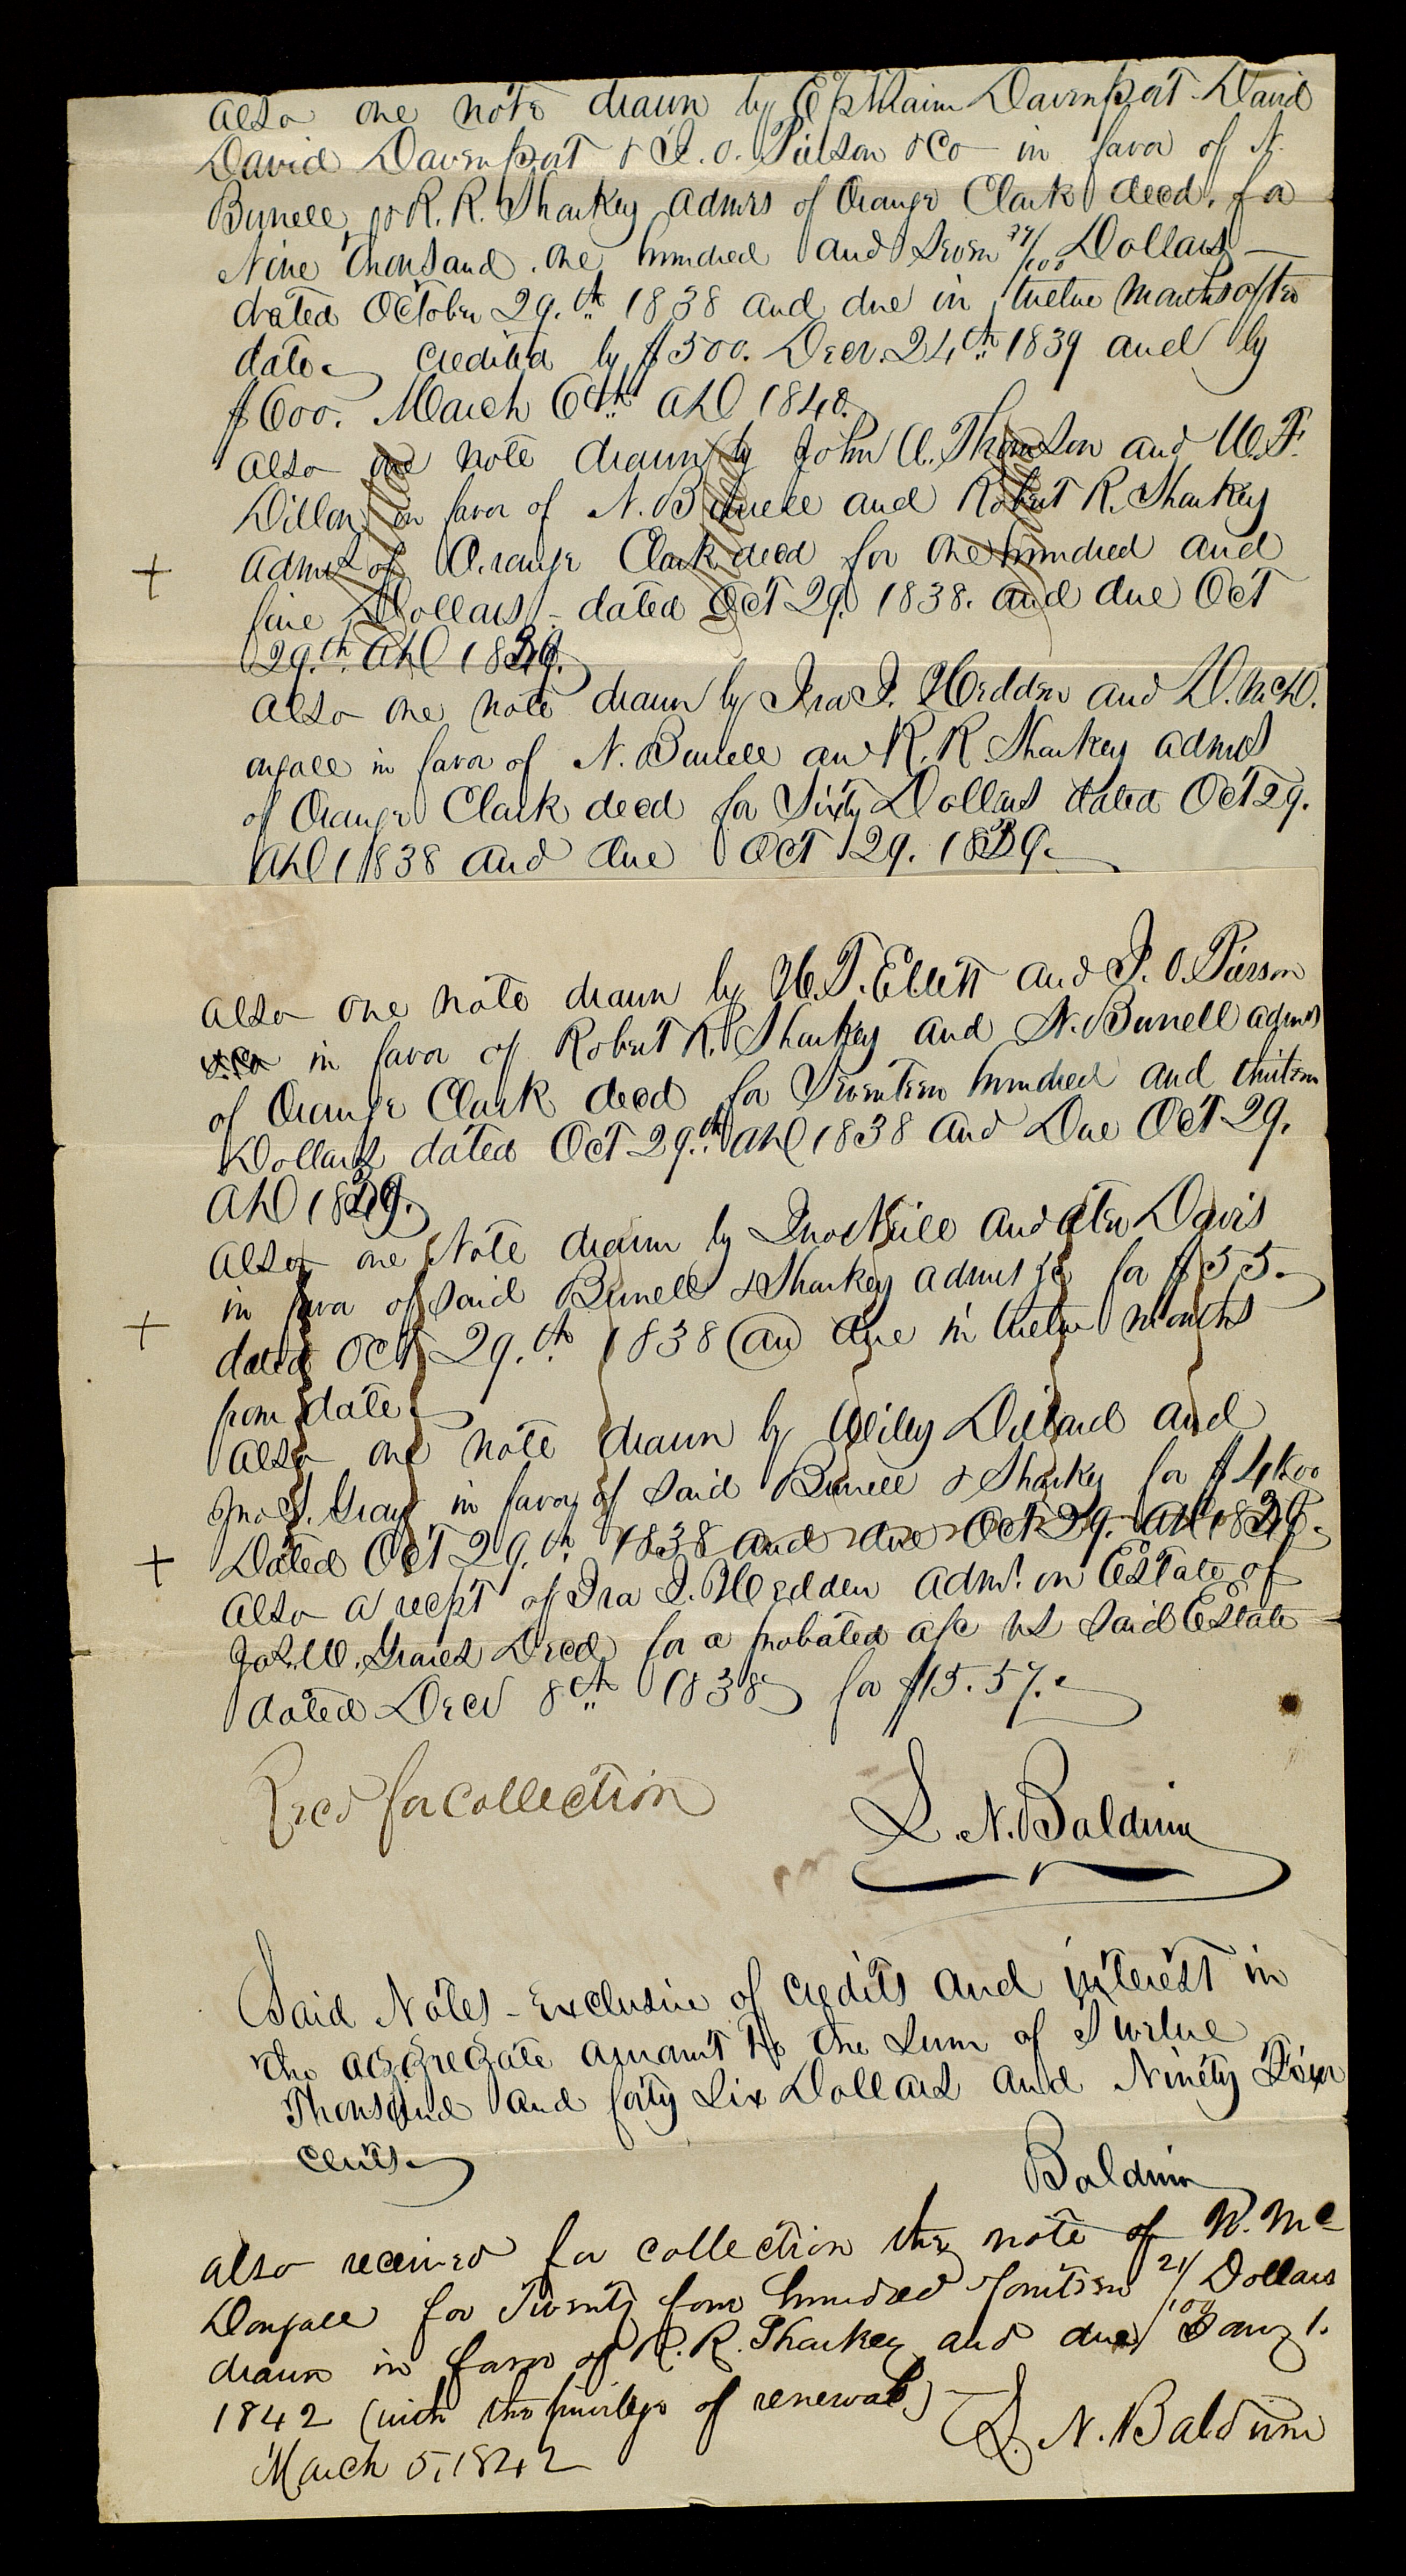 Also one note drawn by Ephraim Davenport David
David Davenport & I. O. Pierson & Co in favor of N.
Bunell, & R. R. Sharkey admrs of Orange Clark decd. for
Nine thousand one hundred and Seven 37/100 Dollars
dated October 29.th 1838 and due in twelve months after
date. Credited by $500. Decr. 24th 1839 and by
$600. March 6th AD 1840.
Also one note drawn by John A. Thomson and W. F.
Dillon in favor of N. Bunell and Robert R. Sharkey
admrs of Orange Clark decd for One hundred and
five Dollars - dated Oct 29. 1838. and due Oct
29.th AD 1839.
Also one note drawn by Ira I. Hedden and D. McD.
ougall in favor of N. Bunell and R. R Sharkey admrs
of Orange Clark decd for Sixty Dollars dated Oct 29.
AD 1838 and due Oct 29. 1839.
Also one note drawn by H. T. Ellett and I. O. Pierson
in favor of Robert R. Sharkey and N. Bunell admrs
of Orange Clark decd for Seventeen hundred and thirteen
Dollars dated Oct 29.th AD 1838 and Due Oct 29.
AD 1839.
Also one Note drawn by Jno Neill and Davis
in favor of said Bunell & Sharkey admrs &c for $55.
dated Oct 29.th 1838 and due in twelve months
from date.
Also one note drawn by Wiley Dillard and
Jno S. Gray in favor of said Bunell & Sharkey for
Dated Oct 29.th 1838 and due Oct 29. AD 1839.
Also a recpt of Ira I. Hedden admr. on Estate of
Jas. W. Graves Decd for a probated a/c vs said Estate
dated Decr 8th 1838 for $15.57.
Recd for collection
L. N. Baldwin
Said Notes - Exclusive of credits and interest in
the aggregate amount to the Sum of Twelve
Thousand and forty Six Dollars and Ninety Four
cents.
Baldwin
Also received for collection the note of N. Mc
Dougall for Twenty four hundred & fourteen 21/100 Dollars
drawn in favor of R. R. Sharkey and due Jany 1.
1842 (with the privilege of renewal)
L. N. Baldwin
March 5, 1842